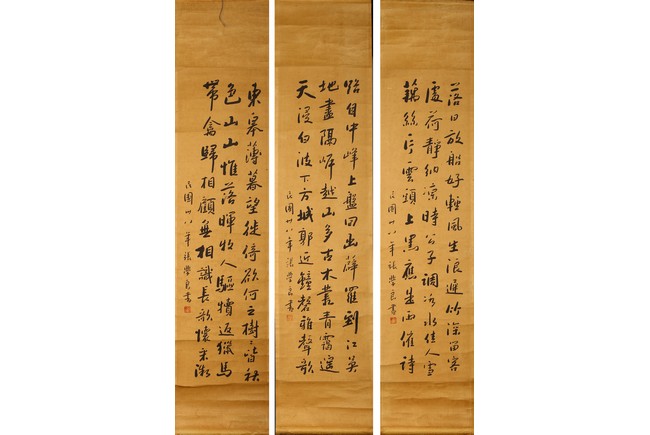 落日放船好輕風生浪遲竹深留客
處荷靜納涼時公子調冰水佳人雪
藕絲片雲頭上黑應是雨催詩
民國卅八年張學良書
路自中峰上盤回出薜蘿到江吳
地盡隔岸越山多古木叢青靄遙
天浸白波下方城郭近鐘磬雜聲歌
民國卅八年張學良書
東皋薄暮望徙倚欲何之樹〻皆秋
色山山惟落暉牧人驅犢返獵馬
帶禽歸相顧無相識長歌懷采薇
民國卅八年張學良書